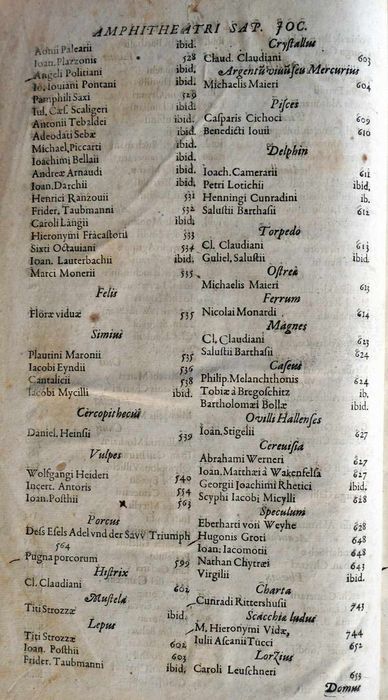 AMPHITHEATRI SAP. JOC.
Aonii Palearii ibid.
Ioan. Plazzonis 528
Angeli Politiani ibid.
Io. Iouiani Pontani ibid.
Pamphili Saxi 529
Iul. Cæs. Scaligeri ibid.
Antonii Tebaldei ibid.
Adeodati Sebæ ibid.
Michael. Piccarti ibid.
Ioachimi Bellaii ibid.
Andreæ Arnaudi ibid.
Ioan. Darchii ibid.
Henrici Ranzouii 531
Frider. Taubmanni 532
Caroli Langii ibid.
Hieronymi Fracastorii 533
Sixti Octauiani 534
Ioan. Lauterbachii ibid.
Marci Monerii 535
Felis
Floræ viduæ 535
Simius
Plautini Maronii 535
Iacobi Eyndii 536
Cantalicii 538
Iacobi Mycilli ibid.
Cercopithecus
Daniel. Heinsii 539
Vulpes
Wolfgangi Heideri 540
Incert. Antoris 554
Ioan. Posthii 563
Porcus
Dess Esels Adel vnd der Savv Triumph
564
Pugna porcorum 599
Histrix
Cl. Claudiani 602
Mustela
Titi Strozzæ ibid.
Lepus
Titi Strozzæ ibid.
Ioan. Posthii 602
Frider. Taubmanni 603
Crystallus
Claud. Claudiani 603
Argentū viuū seu Mercurius
Michaelis Maieri 604
Pisces
Casparis Cichoci 609
Benedicti Iouii 610
Delphin
Ioach. Camerarii 611
Petri Lotichii ibid.
Henningi Cunradini ib.
Salustii Barthasii 612
Torpedo
Cl. Claudiani 613
Guliel. Salustii ibid.
Ostrea
Michaelis Maieri 613
Ferrum
Nicolai Monardi 614
Magnes
Cl. Claudiani 623
Salustii Barthasii 624
Caseus
Philip. Melanchthonis 624
Tobiæ à Bregoschitz ib.
Bartholomæi Bollæ ibid.
Ovilli Hallenses
Ioan. Stigelii 627
Cereuisia
Abrahami Werneri 627
Ioan. Matthæi à Wakenfelsz 627
Georgii Ioachimi Rhetici ibid.
Scyphi Iacobi Micylli 628
Speculum
Eberharti von Weyhe 628
Hugonis Groti 648
Ioan: Iacomotii 648
Nathan Chytræi 643
Virgilii ibid.
Charta
Cunradi Rittershusii 743
Scacchiæ ludus
M. Hieronymi Vidæ, 744
Iulii Ascanii Tucci 652
Lorzius
Caroli Leuschneri 653
Domus